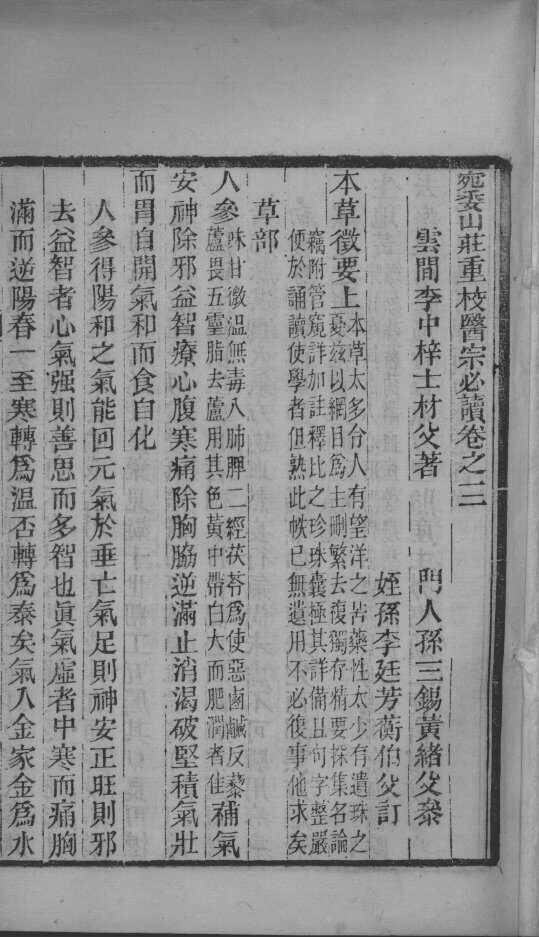 宛委山莊重校醫宗必讀卷之三
雲間李中梓士材父著　門人孫三錫黃緒父叅
姪孫李廷芳蘅伯父訂
本草徵要上
本草太多令人有望洋之苦藥性太少有遺珠之
憂茲以綱目爲主刪繁去復獨存精要採集名論
竊附管窺詳加註釋比之珍珠囊極其詳備且句字整嚴
便於誦讀使學者但熟此帙已無遺用不必復事他求矣
草部
人參
味甘微溫無毒入肺脾二經茯苓爲使惡鹵鹹反藜
蘆畏五靈脂去蘆用其色黃中帶白大而肥潤者佳
補氣
安神除邪益智療心腹寒痛除胸脇逆滿止消渴破堅積氣壯
而胃自開氣和而食自化
人參得陽和之氣能回元氣於垂亡氣足則神安正旺則邪
去益智者心氣强則善思而多智也眞氣虛者中寒而痛胸
滿而逆陽春一至寒轉爲溫否轉爲泰矣氣入金家金爲水